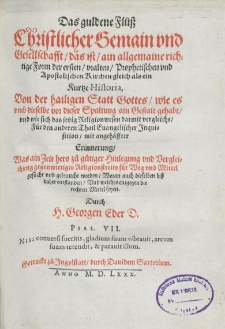 Das guldene Flüß
Christlicher Gemain vnd
Gesellschafft / das ist / ain allgemaine rich-
tige Form der ersten / vralten / Prophetischen vnd
Apostolischen Kirchen gleich als ein
Kurtze Historia,
Von der hailigen Statt Gottes / wie es
vmb dieselbe vor dieser Spaltung ain Gestalt gehabt /
vnd wie sich das jetzig Religionwesen darmit vergleiche /
Für den anderen Thail Euangelischer Inqui-
sition / mit angehäffter
Erinnerung /
Was ain Zeit hero zů gůtiger Hinlegung vnd Verglei-
chung gegenwürtiges Religionstreits für Weg vnd Mittel
gesůcht vnd gebraucht worden /
Durch
H. Georgen Eder D.
PSAL. VII.
NISI conuersi fueritis, gladium suum vibrauit, arcum
suum tetendit, & parauit illum.
Getruckt zů Ingolstatt / durch Dauidem Sartorium.
ANNO M. D. LXXX.